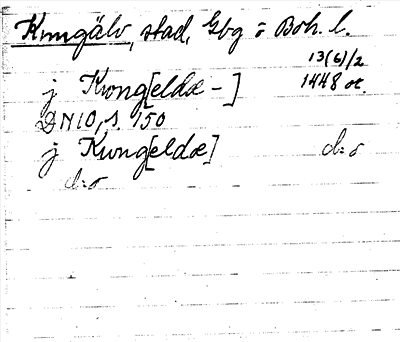 Kungälv, stad, Gbg o Boh. l.
13(6)/2
j Kwng[eldæ -] 1448 or.
DN 10, s. 150
j Kwng[eldæ] d:o
d:o